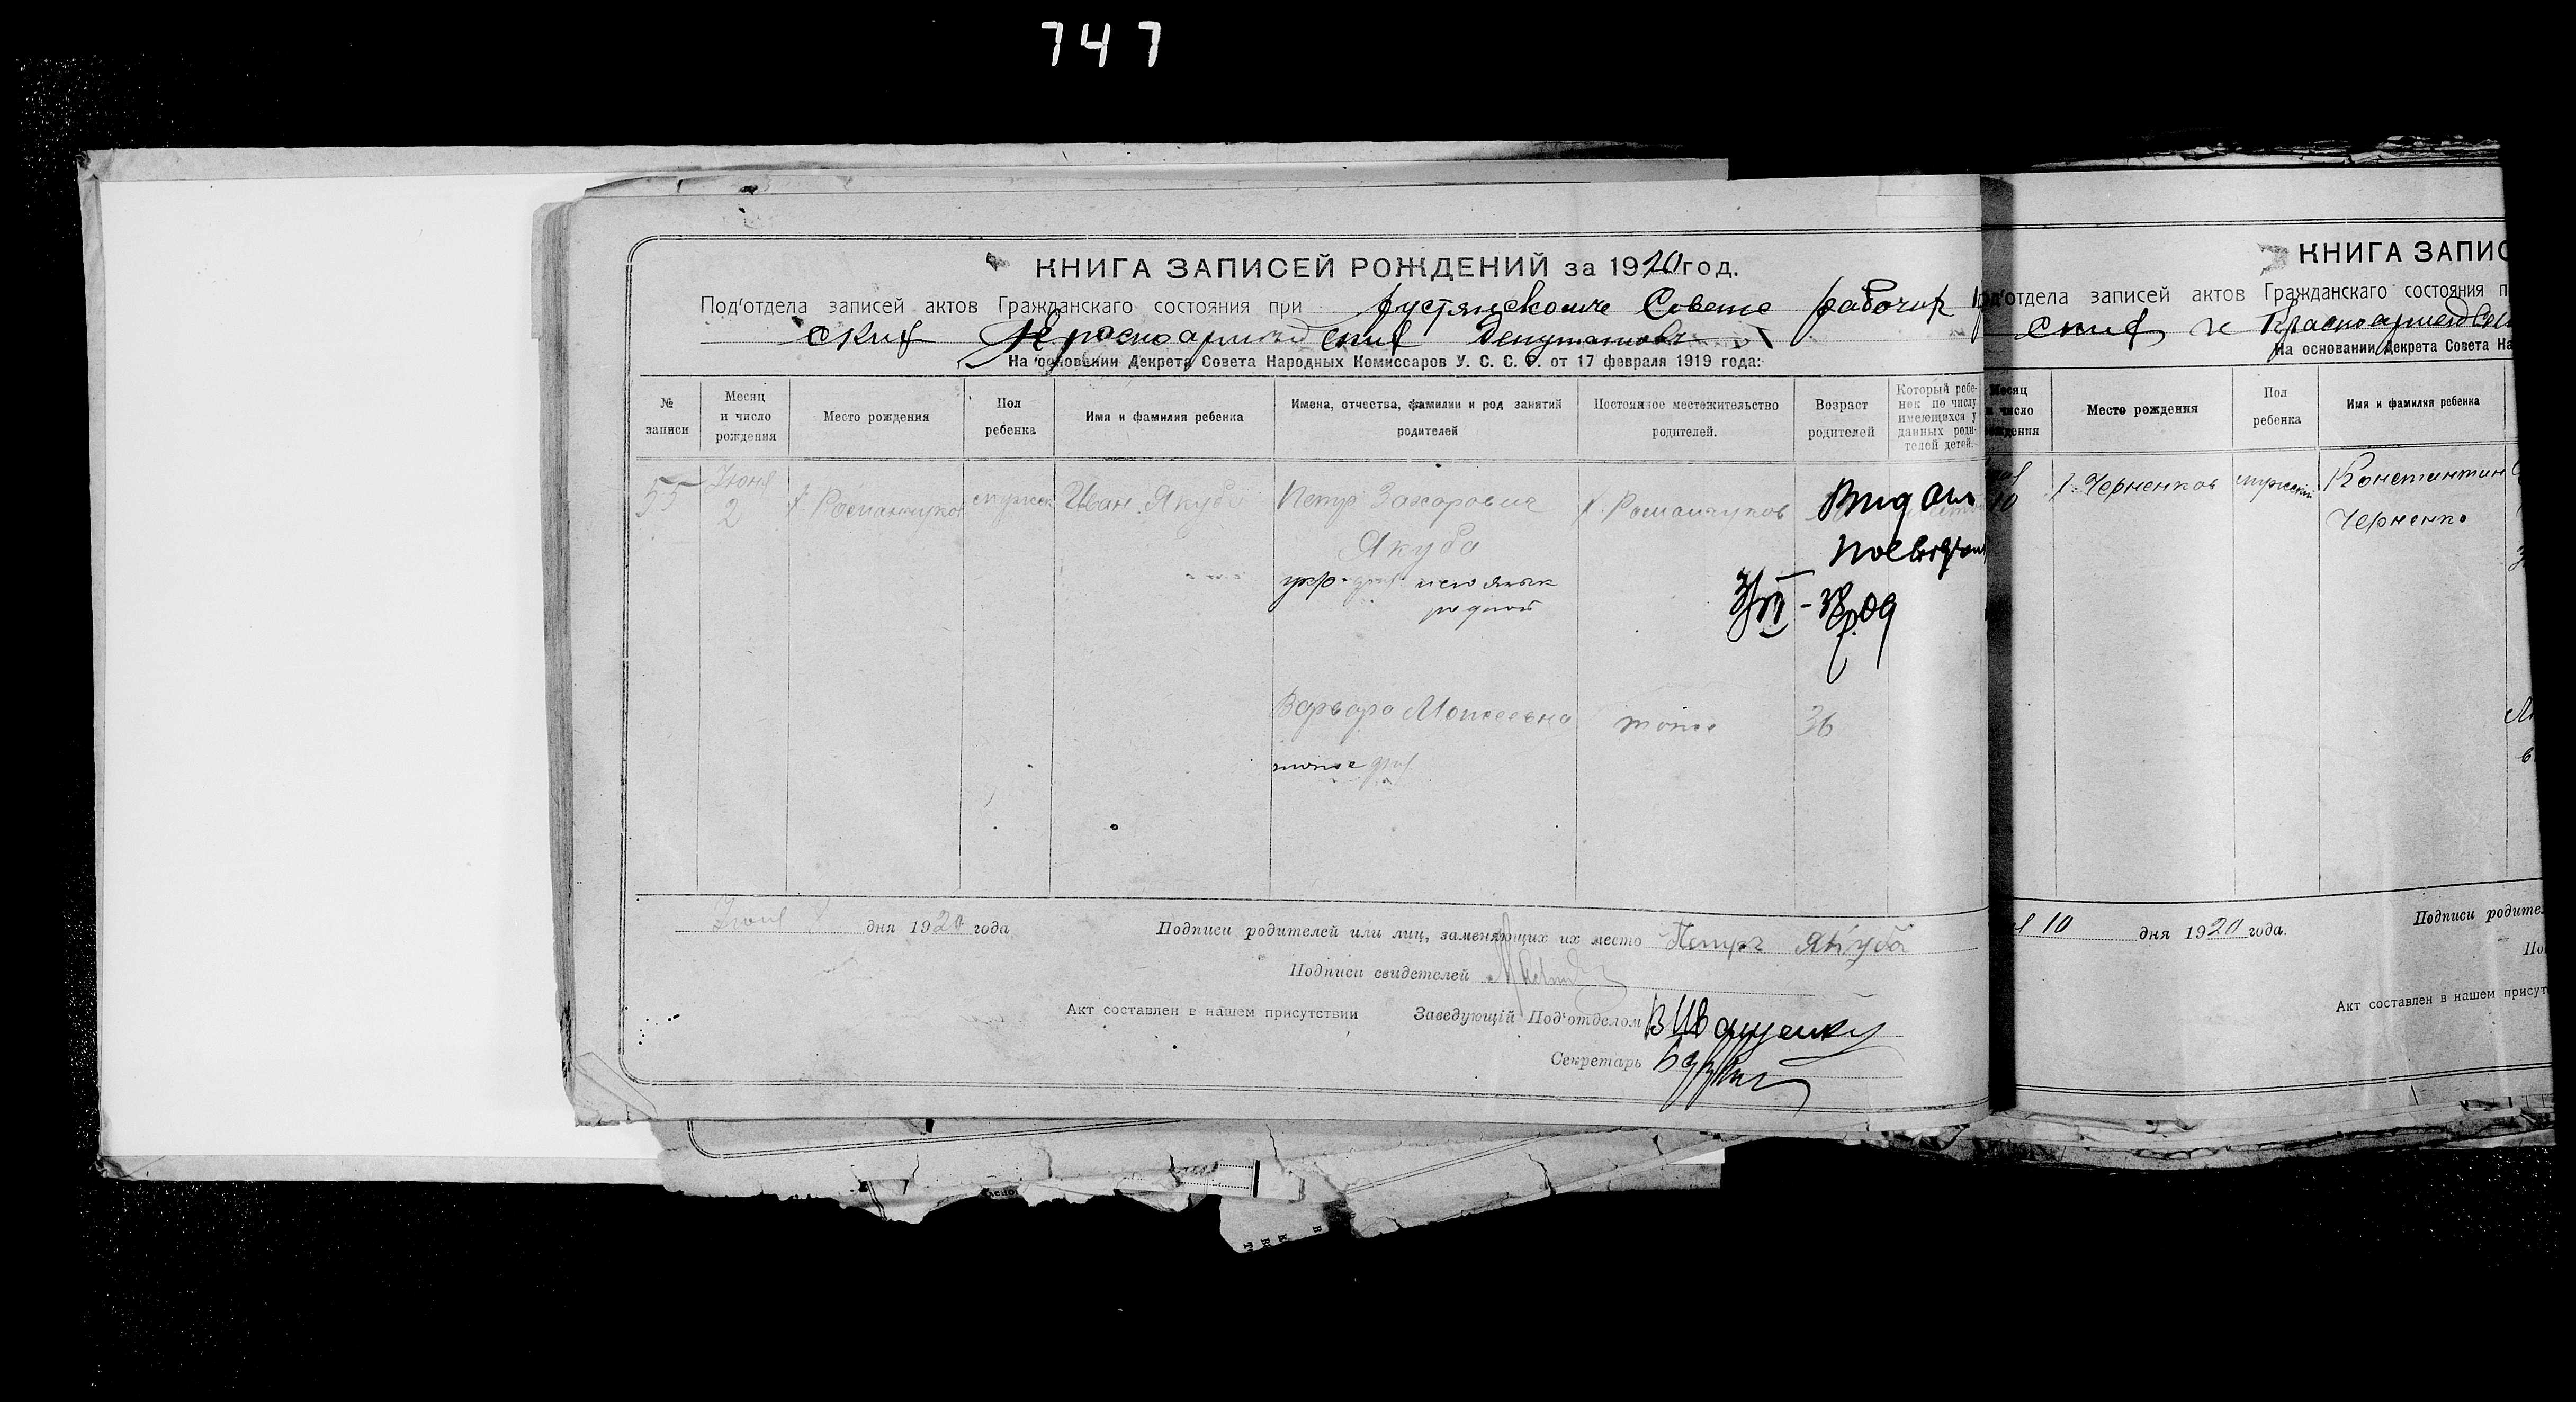 747
КНИГА ЗАПИСЕЙ РОЖДЕНИЙ за 1920 год.
Под'отдела записей актов Гражданскаго состояния при Совете рабочих
ских Красноармейских Депутатов
На основании Декрета Совета Народных Комиссаров У. С. С. Р. от 17 февраля 1919 года:
№ записи
Месяц и число рождения
Место рождения
Пол ребенка
Имя и фамилия ребенка
Имена, отчества, фамилии и род занятий родителей
Постоянное местожительство родителей.
Возраст родителей
Который ребенок по числу имеющихся у данных родителей детей.
55
Июня 2
х. Романчуков
мужск
Иван Якуба
Петр Захарович
Якуба
укр.
язык
родной
х. Романчуков
Вид
Варвара Моисеевна
тоже
тоже
36
Июня дня 1920 года
Подписи родителей или лиц, заменяющих их место Петръ Якуба
Подписи свидетелей
Акт составлен в нашем присутствии Заведующій Под'отделом В Иващенко
Секретарь
КНИГА ЗАПИС
од'отдела записей актов Гражданскаго состояния п
ских и Красноармейски
На основании Декрета Совета На
Месяц и число рождения
Место рождения
Пол ребенка
Имя и фамилия ребенка
10
х. Черненков
мужской
Константин
Черненко
10 дня 1920 года.
Подписи родител
По
Акт составлен в нашем присут